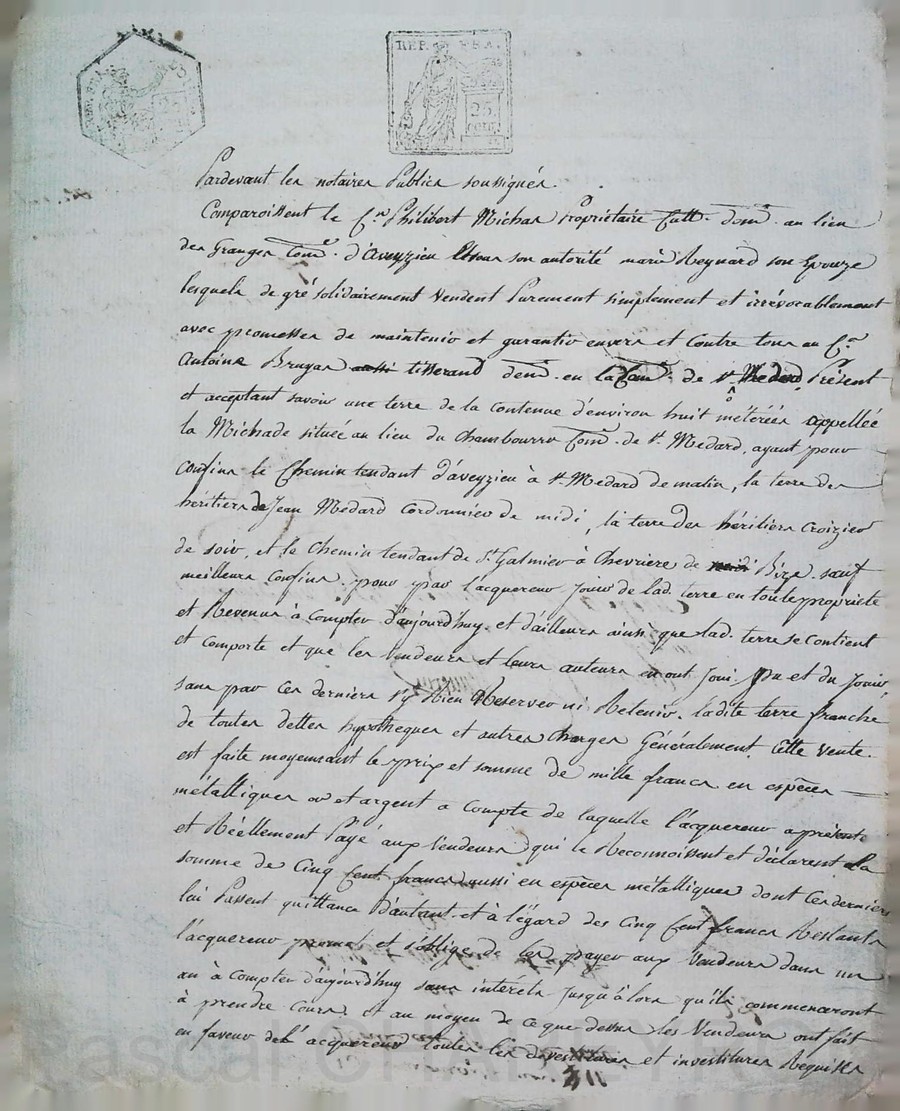 REP. FRA.
25 cent.
Pardevant les notaires Publics soussignés.
Comparoissent le C.en Philibert Michas Propriétaire Cult.r dem.t au lieu
des Granges Com.e d'aveyzieu sous son autorité marie Reynard son Epouze
lesquels de gré solidairement Vendent Purement simplement et irrévocablement
avec promesses de maintenir et garantir envers et Contre tous au C.en
Antoine Bruyas tisserand dem.t en la Com.e de s.t Medard Présent
et acceptant savoir une terre de la Contenue d'environ huit métérées appellée
la Michade située au lieu du Chambourro Com.e de s.t Medard, ayant pour
Confins le Chemin tendant d'aveyzieu à s.t Medard de matin, la terre des
héritiers de Jean Medard Cordonnier de midi, la terre des héritiers Croizier
de soir, et le Chemin tendant de S.t Galmier à Chevriere de Bize. sauf
meilleurs Confins. pour par l'acquereur Jouir de lad. terre en toute propriété
et Revenus à Compter d'aujourd'huy. et d'ailleurs ainsi que lad. terre se Contient
et Comporte et que les Vendeurs et leurs auteurs en ont Joui, Pu et du Jouir,
sans par Ces derniers s'y Rien Reserver ni Retenir. ladite terre franche
de toutes dettes hypotheques et autres Charges Généralement. Cette Vente.
est faite moyennant le prix et somme de mille francs en espèces
métalliques or et argent a Compte de laquelle l'acquereur a présente
et Réellement Payé aux Vendeurs qui le Reconnoissent et déclarent la
somme de Cinq Cent francs aussi en espèces métalliques dont Ces derniers
lui Passent quittance d'autant. et à l'égard des Cinq Cent francs Restants
l'acquereur promet et s'oblige de les payer aux Vendeurs dans un
an à Compter d'aujourd'huy sans intérêts Jusqu'à lors qu'ils commenceront
à prendre Cours. et au moyen de Ce que dessus les Vendeurs ont fait
en faveur de l'acquereur toutes les devestitures et investitures Requises